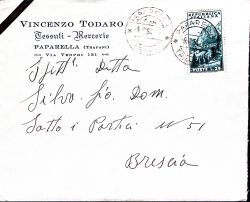 VINCENZO TODARO
Tessuti - Mercerie
PAPARELLA (TRAPANI)
Via Vespri 121
Spett. Ditta
Silvo Gio. Dom.
Sotto i Portici N 51
Brescia